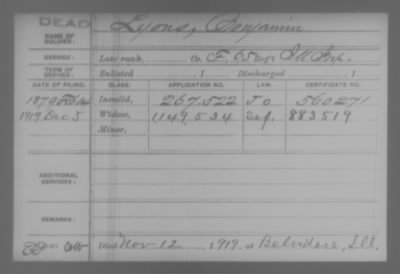 DEAD
Lyons, Benjamin
NAME OF SOLDIER:
SERVICE: Late rank, Co. F, 65 Reg't Ill Inf.
TERM OF SERVICE: Enlisted , 1 Discharged , 1
DATE OF FILING. CLASS. APPLICATION NO. LAW. CERTIFICATE NO.
1879 Feb Invalid, 267,522 560271
1919 Dec 5 Widow, 1,149,534 Sef. 883519
Minor,
ADDITIONAL SERVICES:
REMARKS:
Died Nov 12 1919, at Belvidere, Ill.